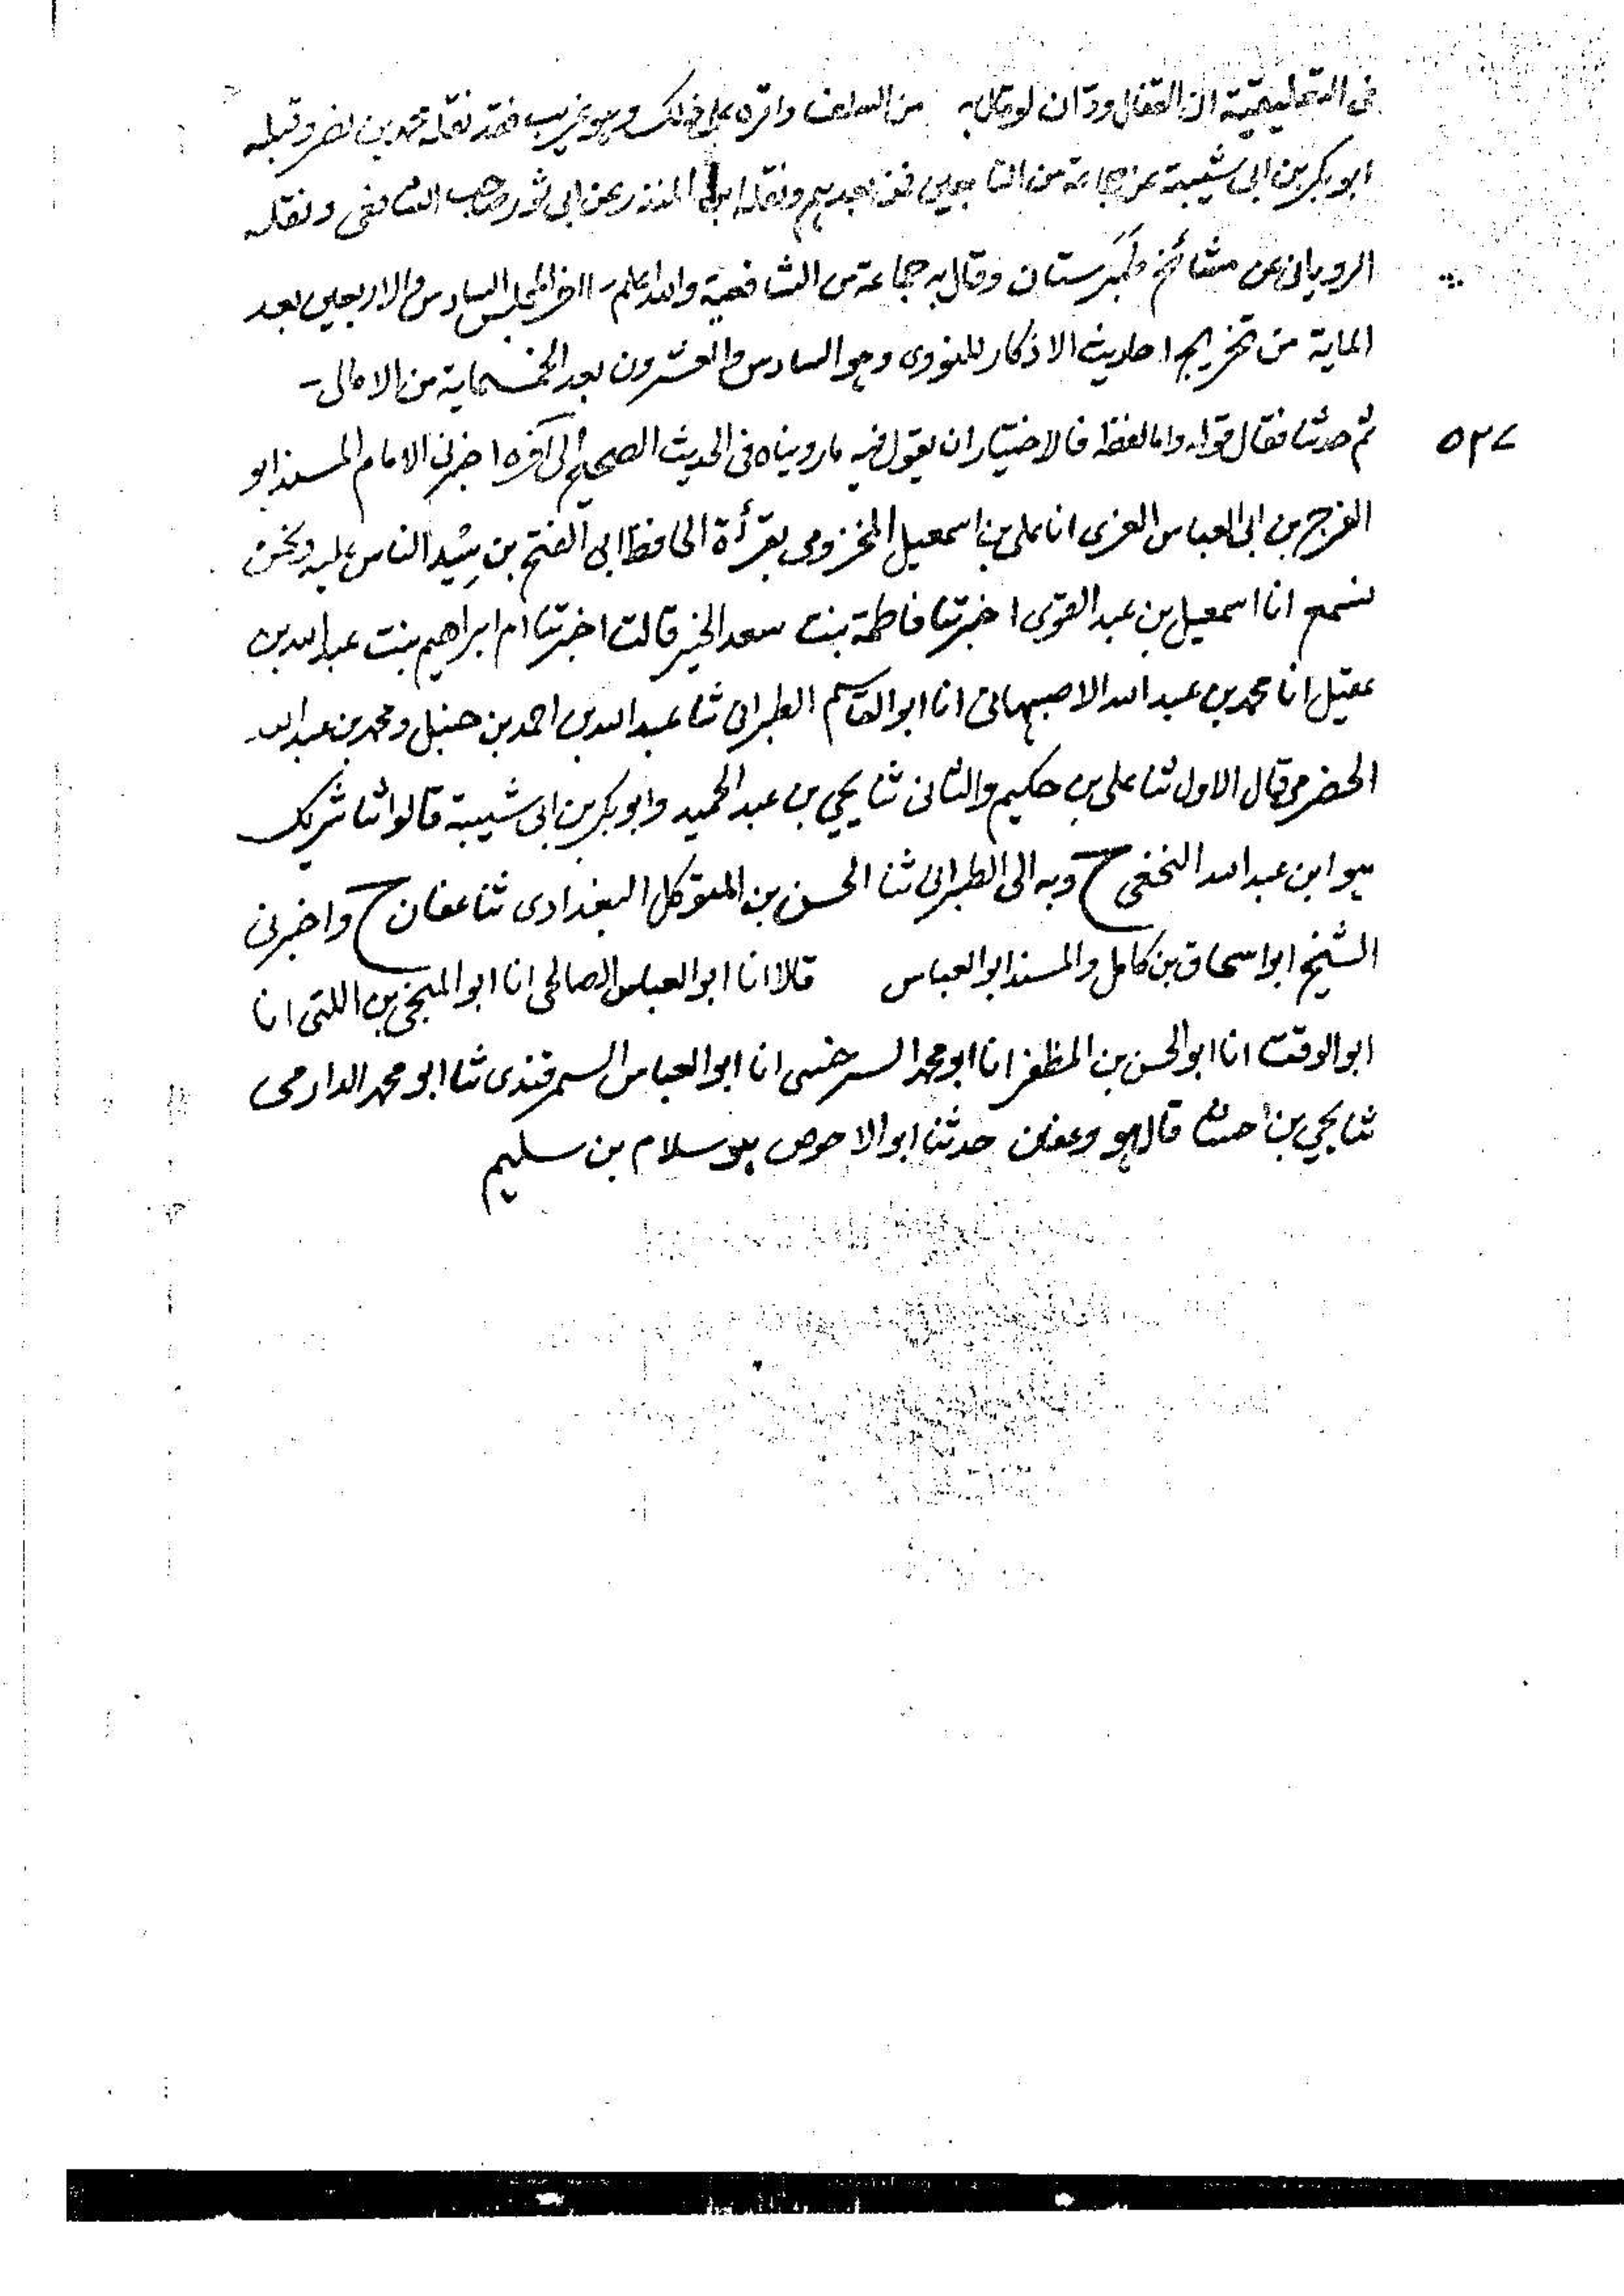 فى التعليقية ان القفال ود ان لو قال به من السلف واتره على ذلك وهو غريب فقد نقله محمد بن نصر وقبله
ابو بكر بن ابى شيبة عن جماعة من التابعين فمن بعدهم ونقله ابن المنذر عن ابى ثور صاحب الشافعى ونقله
الرويانى عن مشائخ طبرستان وقال به جماعة من الشافعية والله اعلم - اخر المجلس السادس والاربعين بعد
الماية من تخريج احاديث الاذكار للنووى وهو السادس والعشرون بعد الخمسماية من الامالى -
٥٢٧ ثم حدثنا فقال قوله واما لفظه فالاختيار ان يقول فيه ما رويناه فى الحديث الصحيح الى آخره اخبرنى الامام المسند ابو
الفرج بن ابى العباس الغزى انا على بن اسمعيل المخزومى بقرأة الحافظ ابى الفتح بن سيد الناس عليه ونحن
نسمع انا اسمعيل بن عبد القوى اخبرتنا فاطمة بنت سعد الخير قالت اخبرتنا ام ابراهيم بنت عبد الله بن
عقيل انا محمد بن عبد الله الاصبهانى انا ابو القاسم الطبرانى ثنا عبد الله بن احمد بن حنبل ومحمد بن عبد الله
الحضرمى قال الاول ثنا على بن حكيم والثانى ثنا يحيي بن عبد الحميد وابو بكر بن ابى شيبة قالوا ثنا شريك
هو ابن عبد الله النخعى ح وبه الى الطبرانى ثنا الحسن بن المتوكل البغدادى ثنا عفان ح واخبرنى
الشيخ ابو اسحاق بن كامل والمسند ابو العباس قالا انا ابو العباس الصالحى انا ابو المنجى بن اللتى انا
ابو الوقت انا ابو الحسن بن المظفر انا ابو محمد السرخسى انا ابو العباس السمرقندى ثنا ابو محمد الدارمى
ثنا يحيي بن حسان قال هو وعفان حدثنا ابو الاحوص هو سلام بن سليم